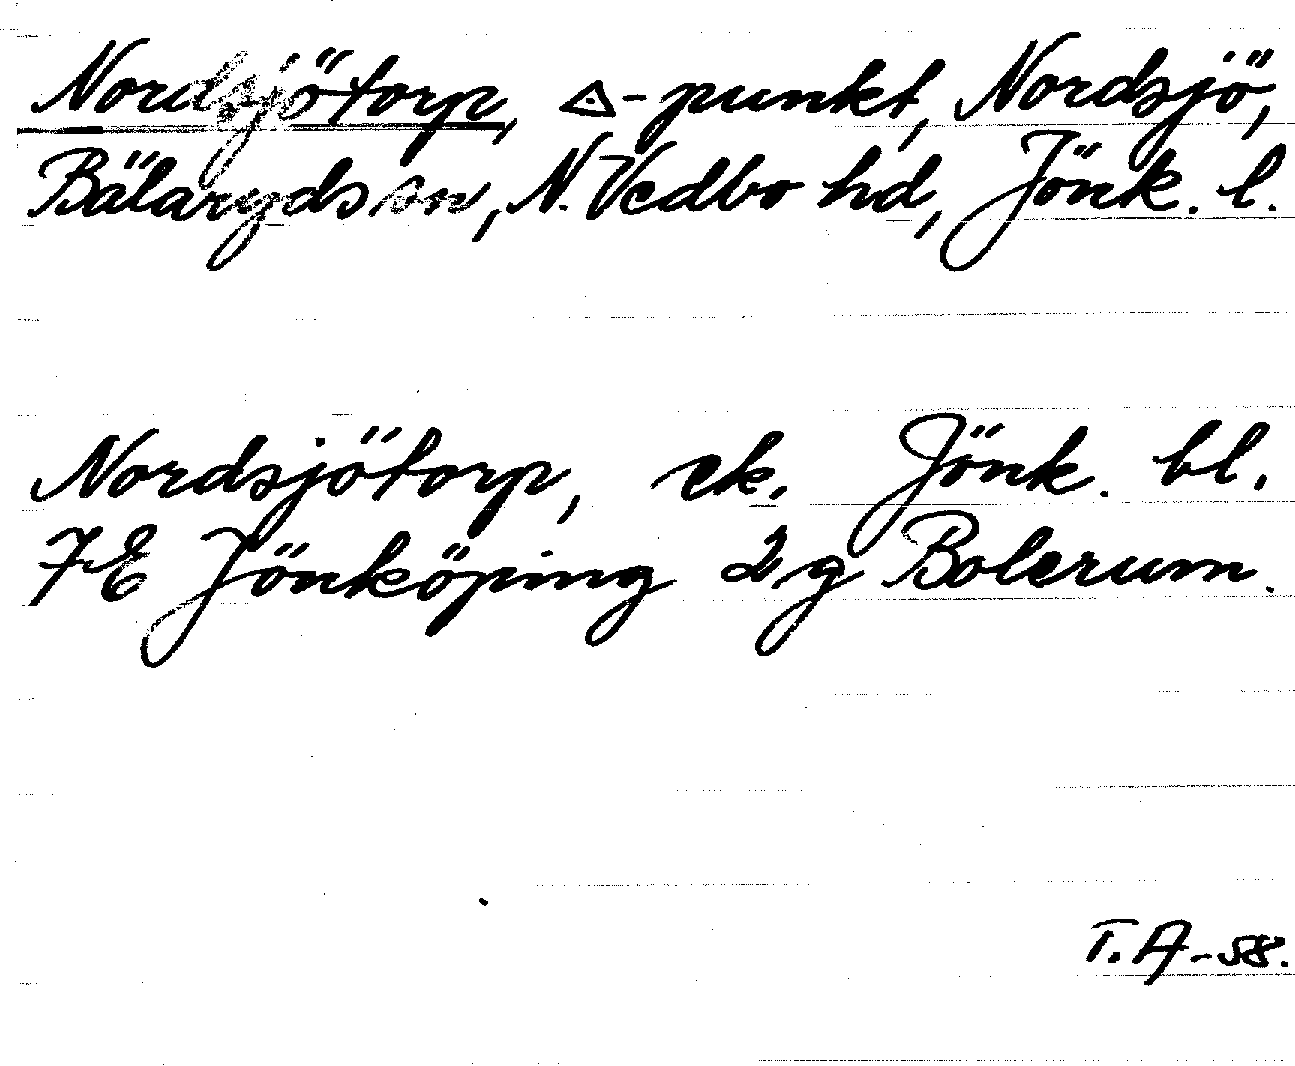 Nordsjötorp, △-punkt, Nordsjö,
Bälaryds sn, N. Vedbo hd, Jönk. l.
Nordsjötorp, ek. Jönk. bl.
7E Jönköping 2g Bolerum.
T. A -58.